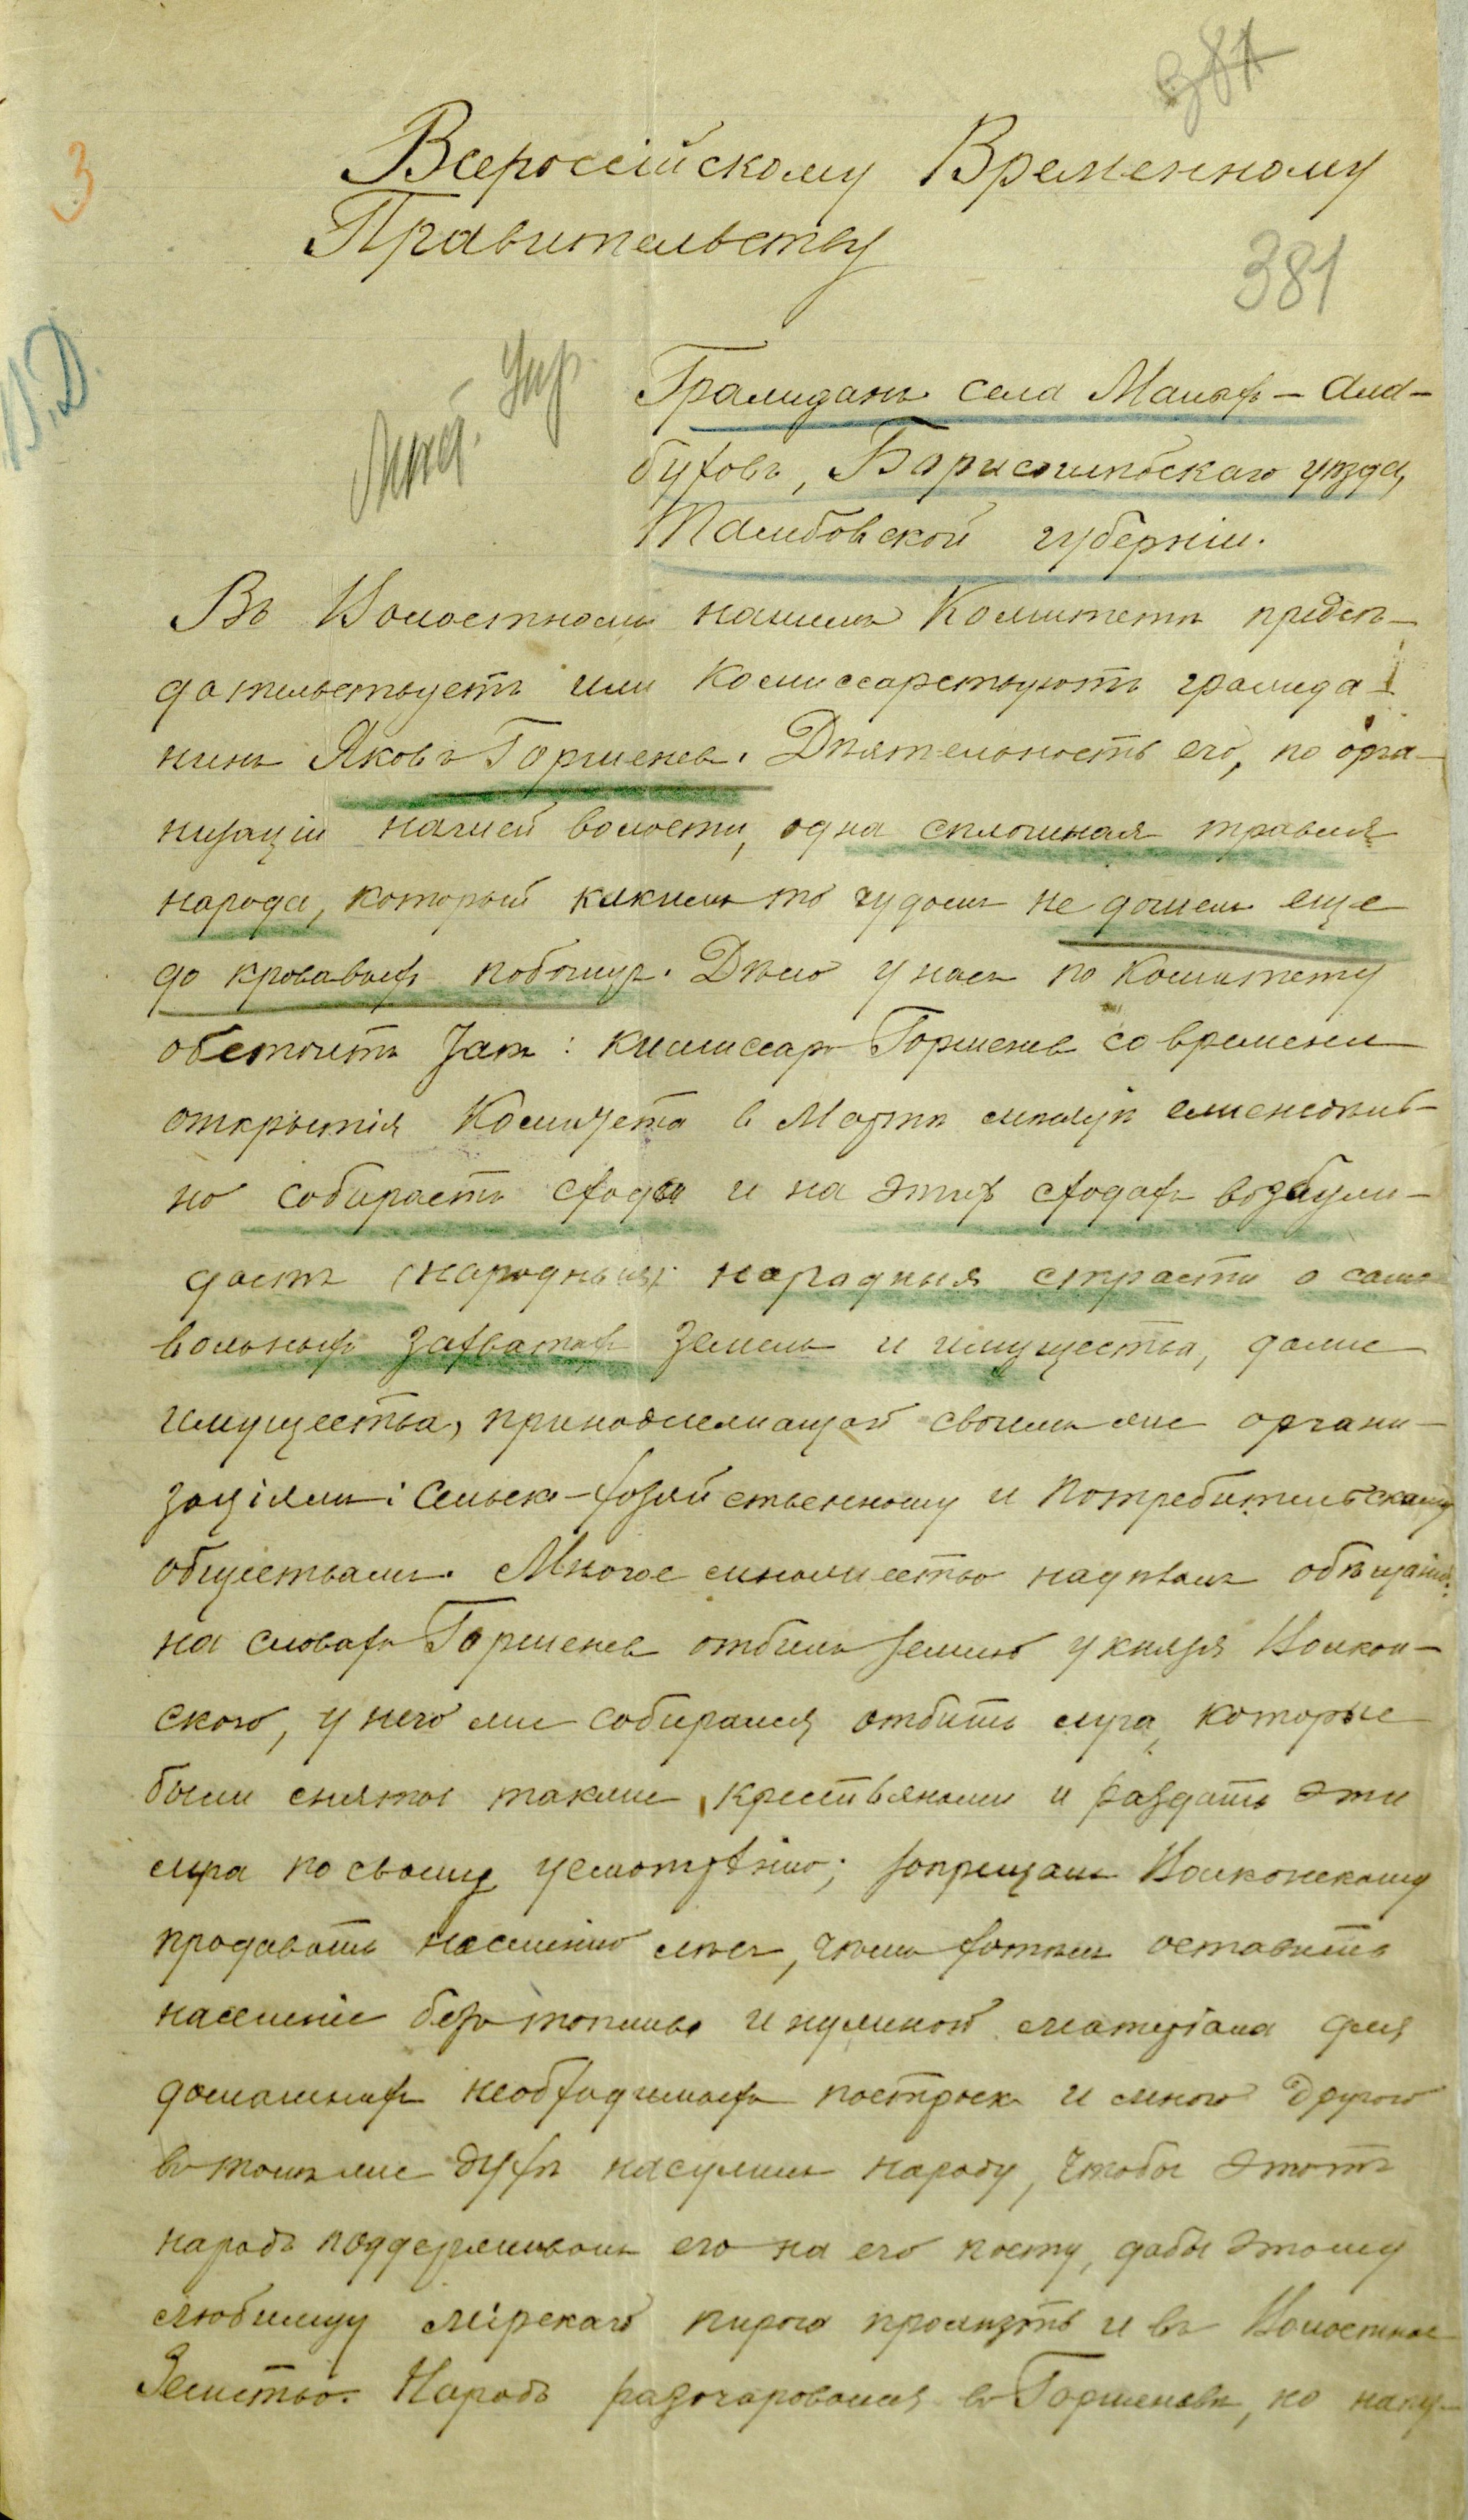 381
3
Всероссійскому Временному
Правительству
381
В.Д.
Упр.
Граждан села Малых-Ала-
бухов, Борисоглѣбскаго уѣзда,
Тамбовской губерніи.
Въ Волостном нашем Комитетѣ предсѣ-
дательствует или комиссарствуютъ гражда-
нин Яковъ Горшенев. Дѣятельность его, по орга-
низаціи нашей волости, одна сплошная травля
народа, который каким то чудом не дошел еще
до кровавых побоищ. Дѣло у нас по Комитету
обстоитъ так: комиссар Горшенев со времени
открытія Комитета в Мартѣ мѣсяцѣ еженедѣль-
но собирает сходы и на этих сходах возбуж-
дает (народныя) народныя страсти о само
вольных захватах земель и имущества, даже
имущества, принадлежащей своим же органи-
заціям: Сельско-хозяйственному и Потребительскому
обществам. Многое множество надѣлал обѣщаній:
на словах Горшенев отбил землю у князя Волкон-
скаго, у него же собирался отбить луга, которые
были сняты также крестьянами и раздать эти
луга по своему усмотрѣнію; запрещал Волконскому
продавать населенію лѣс, чѣм хотѣл оставить
населеніе без топлива и нужной матеріала для
домашних необходимых построек и много другого
в том же духѣ насулил народу, чтобы этотъ
народъ поддерживал его на его посту, дабы этому
любимцу мірскаго пирога пролѣзть и въ Волостное
Земство. Народъ разочаровался в Горшеневѣ, но напу-